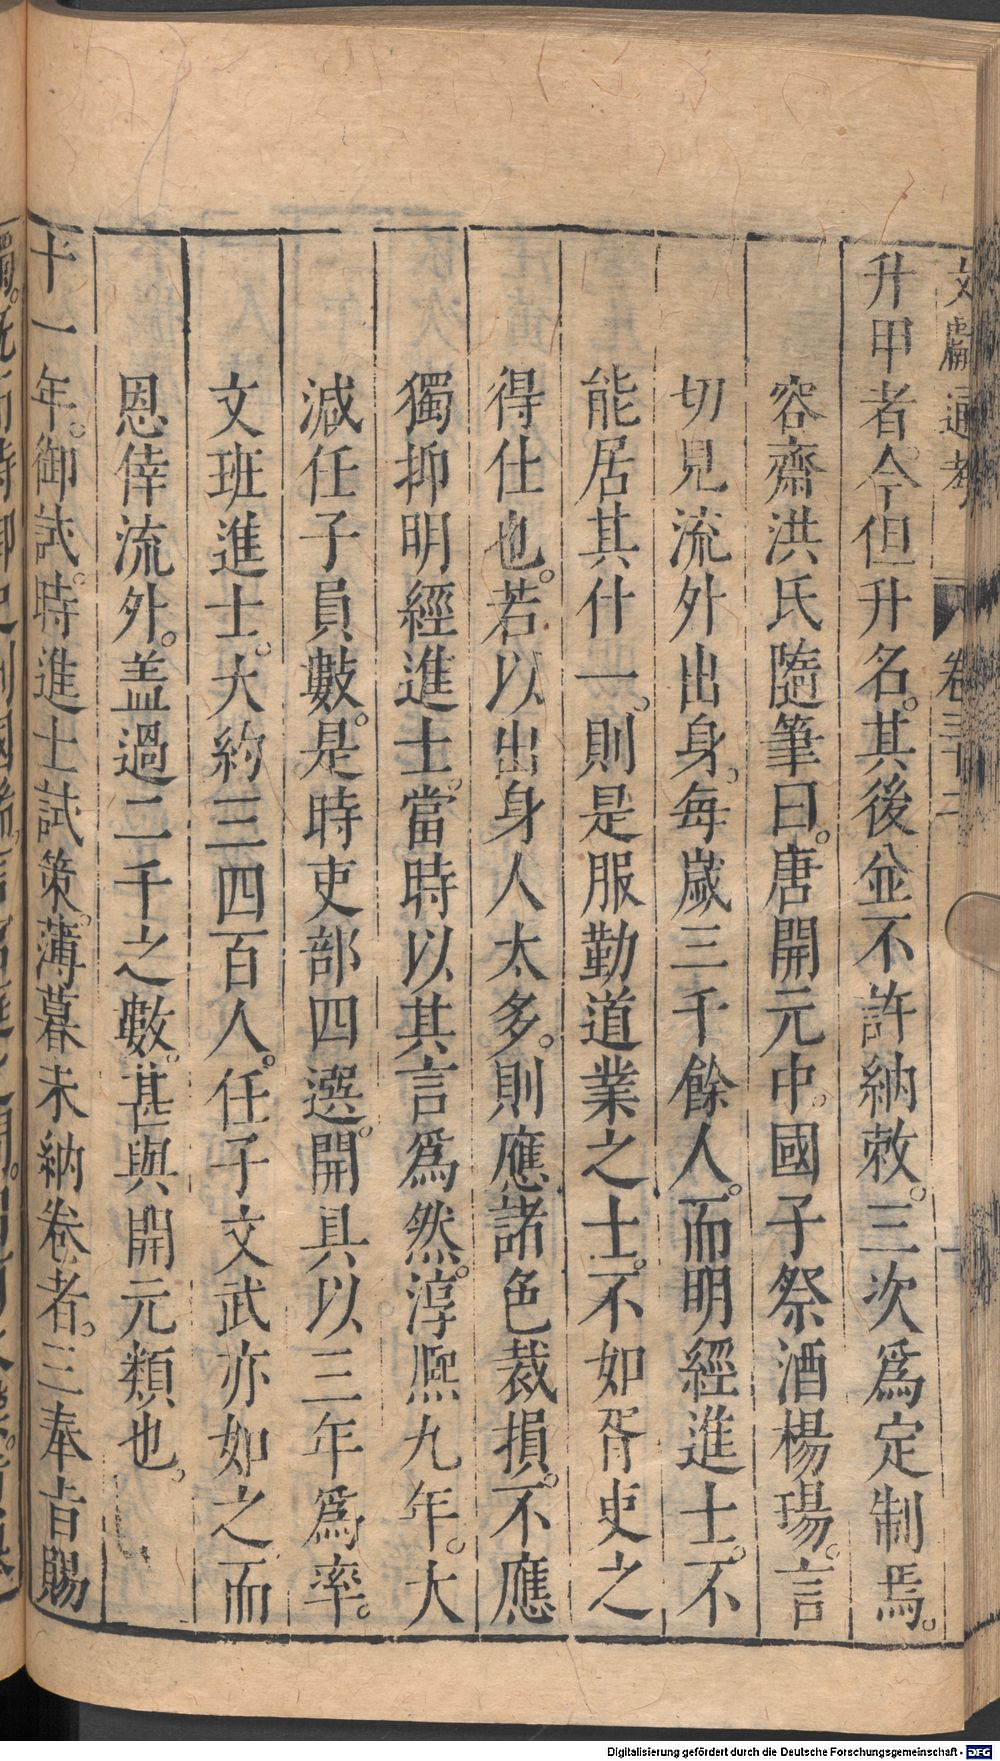 文獻通考　卷三十二
升甲者。今但升名。其後並不許納敕。三次爲定制焉。
容齋洪氏隨筆曰。唐開元中。國子祭酒楊瑒。言
切見流外出身。每歲三千餘人。而明經進士。不
能居其什一。則是服勤道業之士。不如胥吏之
得仕也。若以出身人太多。則應諸色裁損。不應
獨抑明經進士。當時以其言爲然。淳熙九年。大
減任子員數。是時吏部四選。開具以三年爲率。
文班進士。大約三四百人。任子文武亦如之而
恩倖流外。盖過二千之數。甚與開元類也。
十一年。御試。時進士試策。薄暮未納卷者。三奉旨賜
Digitalisierung gefördert durch die Deutsche Forschungsgemeinschaft - DFG